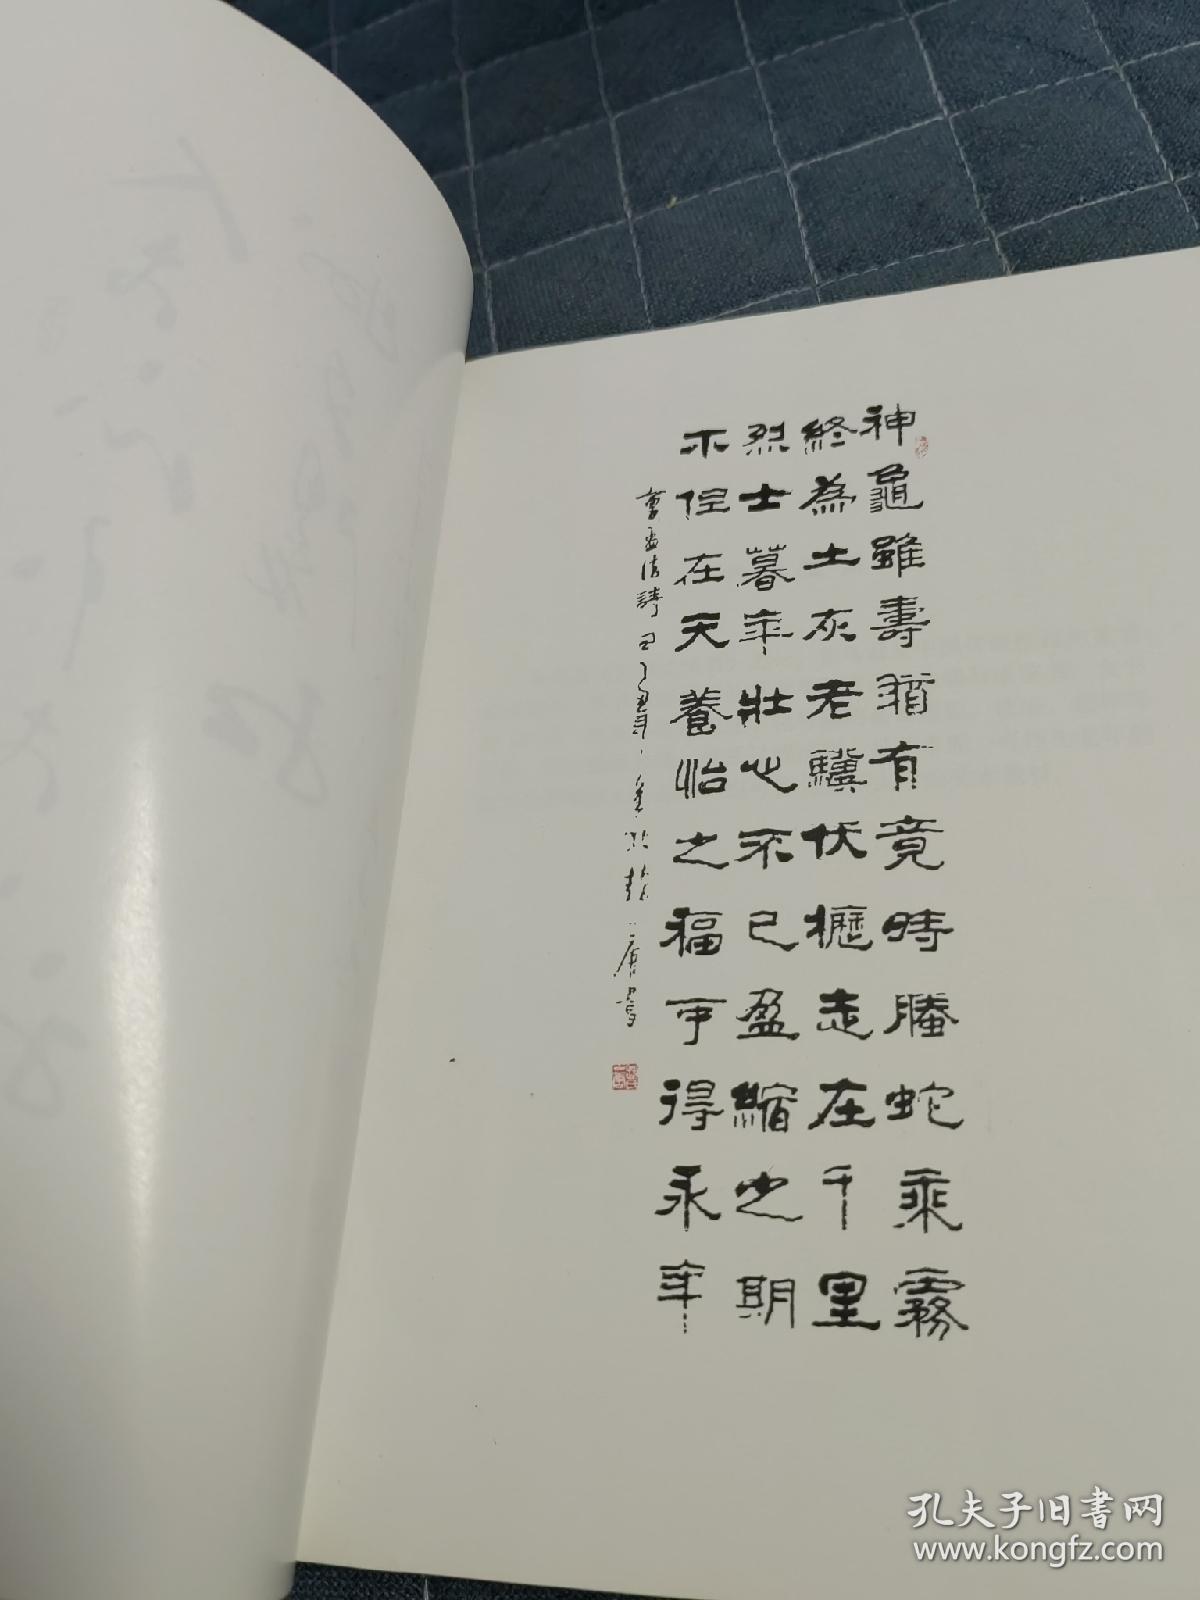 神龜雖壽猶有竟時螣蛇乘霧
終為土灰老驥伏櫪志在千里
烈士暮年壯心不已盈縮之期
不但在天養怡之福可得永年
曹孟德詩
孔夫子旧书网
www.kongfz.com